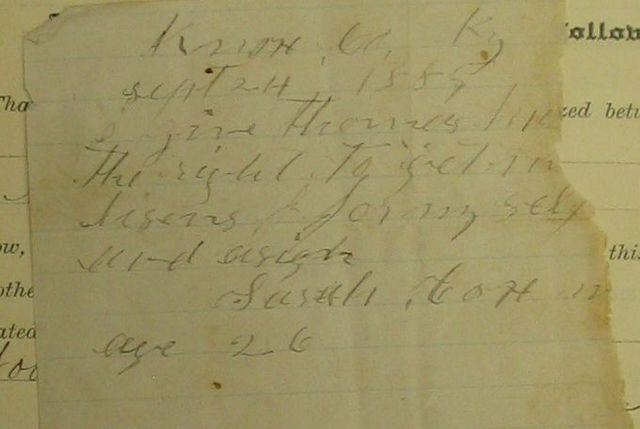 Knox Co, Ky
Sept 24, 1889
i give thomas
the right to get m
lisens for my self
and asign
Sarah Cox
age 26
follow
Tha
zed betw
ow,
this
othe
ated